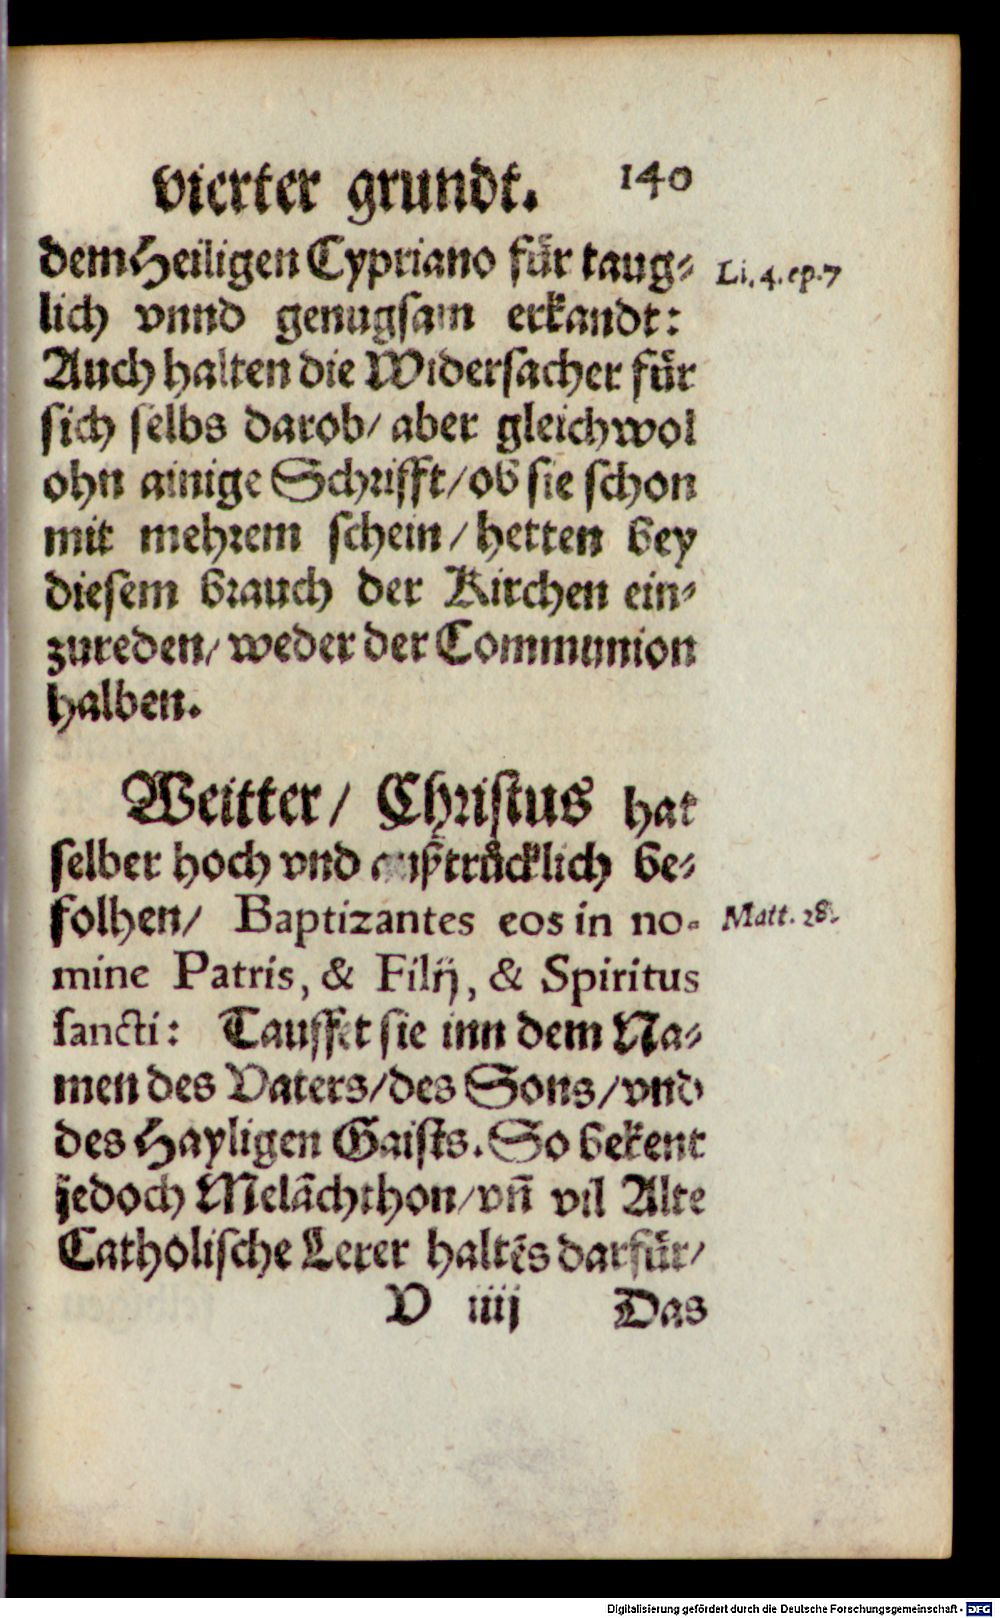 vierter grundt. 140
dem Heiligen Cypriano fůr taug⸗
Li. 4. ep. 7
lich vnnd genugsam erkandt:
Auch halten die Widersacher fůr
sich selbs darob/ aber gleichwol
ohn ainige Schrifft/ ob sie schon
mit mehrem schein/ hetten bey
diesem brauch der Kirchen ein⸗
zureden/ weder der Communion
halben.
Weitter/ Christus hat
selber hoch vnd außtrůcklich be⸗
folhen/ Baptizantes eos in no-
Matt. 28.
mine Patris, & Filij, & Spiritus
sancti: Tauffet sie inn dem Na⸗
men des Vaters/ des Sons/ vnd
des Hayligen Gaists. So bekent
jedoch Melāchthon/ vn̄ vil Alte
Catholische Lerer haltēs darfůr/
V iiij Das
Digitalisierung gefördert durch die Deutsche Forschungsgemeinschaft - DFG